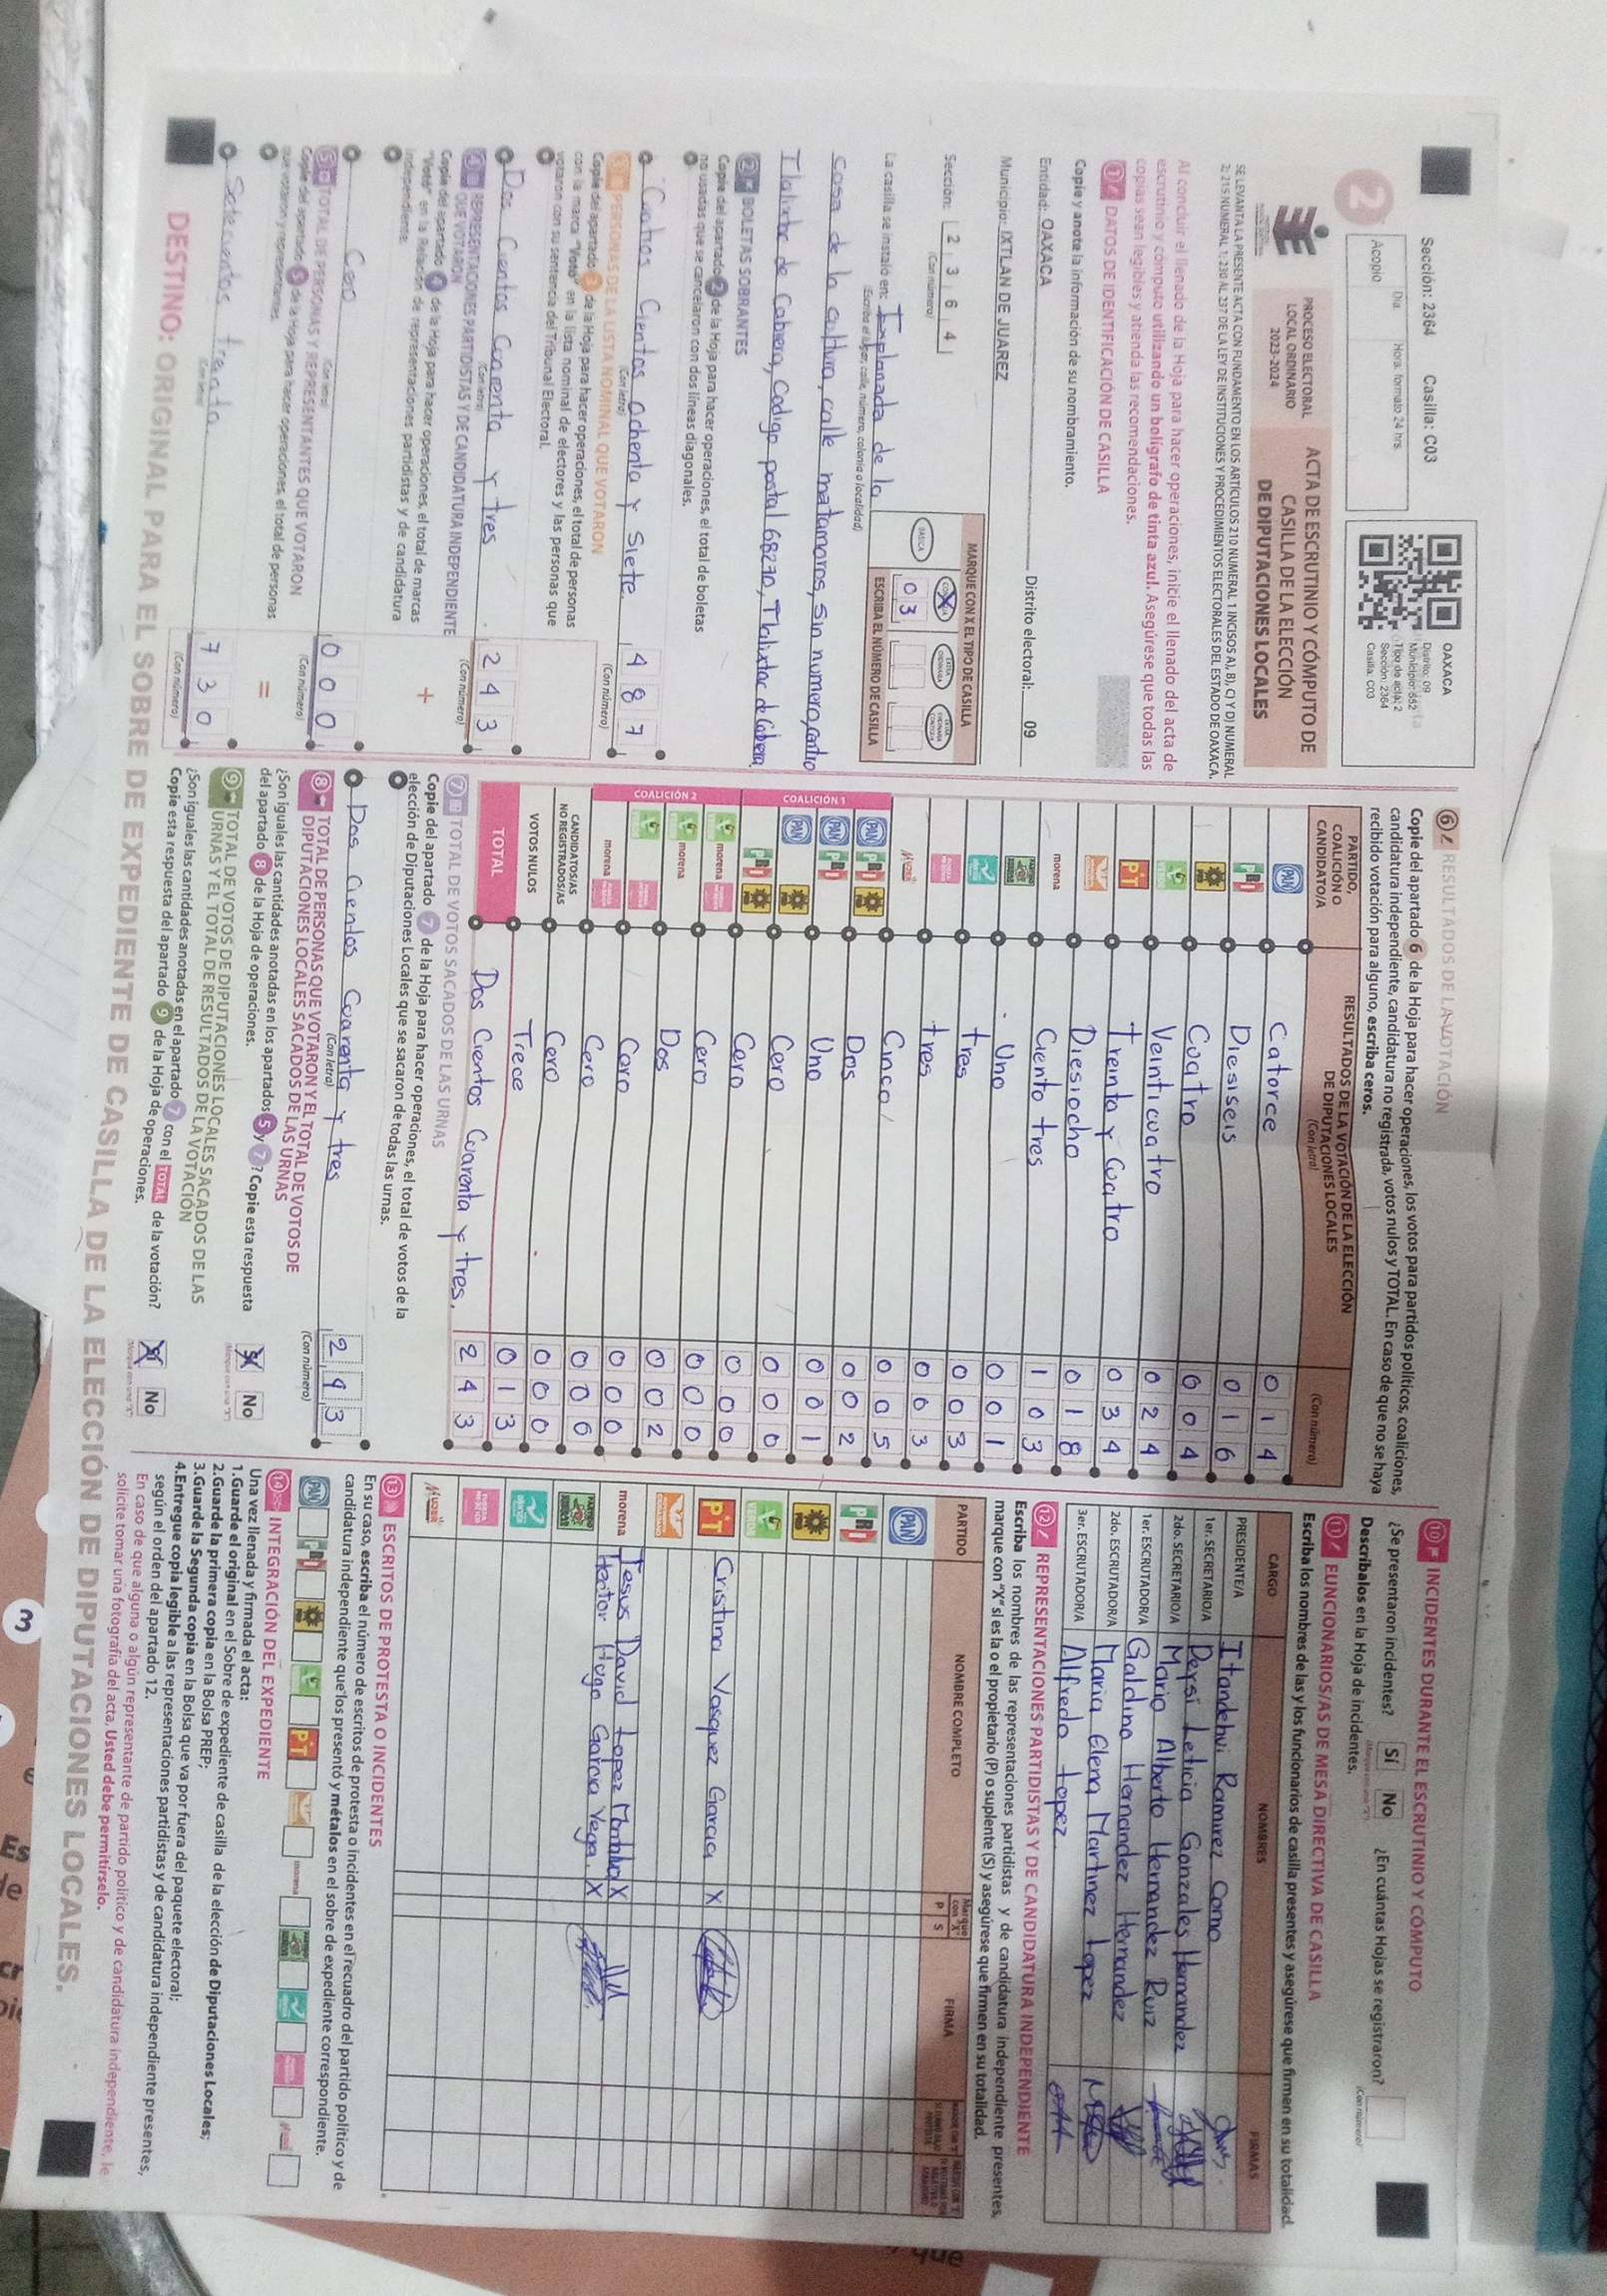 OAXACA
Distrito: 09
Tipo de acta: 2
Sección: 2364
Casilla: C03
Sección: 2364 Casilla: C03
Día Hora: formato 24 hrs
Acopio
2
PROCESO ELECTORAL
LOCAL ORDINARIO
2023-2024
ACTA DE ESCRUTINIO Y CÓMPUTO DE
CASILLA DE LA ELECCIÓN
DE DIPUTACIONES LOCALES
SE LEVANTA LA PRESENTE ACTA CON FUNDAMENTO EN LOS ARTÍCULOS 210 NUMERAL 1 INCISOS A), B), C) Y D) NUMERAL
2; 215 NUMERAL 1; 230 AL 237 DE LA LEY DE INSTITUCIONES Y PROCEDIMIENTOS ELECTORALES DEL ESTADO DE OAXACA.
Al concluir el llenado de la Hoja para hacer operaciones, inicie el llenado del acta de
escrutinio y cómputo utilizando un bolígrafo de tinta azul. Asegúrese que todas las
copias sean legibles y atienda las recomendaciones.
1 DATOS DE IDENTIFICACIÓN DE CASILLA
Copie y anote la información de su nombramiento.
Entidad: OAXACA Distrito electoral: 09
Municipio: IXTLAN DE JUAREZ
Sección: 2 3 6 4
(Con número)
MARQUE CON X EL TIPO DE CASILLA
BÁSICA
ESCRIBA EL NÚMERO DE CASILLA
0 3
La casilla se instaló en: Explanada de la
(Escriba el lugar, calle, número, colonia o localidad)
casa de la cultura, calle matamoros, sin numero, centro
Tlalixtac de Cabrera, Codigo postal 68270, Tlalixtac de Cabrera.
2 BOLETAS SOBRANTES
Copie del apartado 2 de la Hoja para hacer operaciones, el total de boletas
no usadas que se cancelaron con dos líneas diagonales.
Cuatros Cientos ochenta y siete. 4 8 7
(Con letra) (Con número)
3 PERSONAS DE LA LISTA NOMINAL QUE VOTARON
Copie del apartado 3 de la Hoja para hacer operaciones, el total de personas
con la marca "Votó" en la lista nominal de electores y las personas que
votaron con su sentencia del Tribunal Electoral.
Dos Cientos Cuarenta y tres 2 4 3
(Con letra) (Con número)
4 REPRESENTACIONES PARTIDISTAS Y DE CANDIDATURA INDEPENDIENTE
QUE VOTARON
Copie del apartado 4 de la Hoja para hacer operaciones, el total de marcas
"Votó" en la Relación de representaciones partidistas y de candidatura
independiente.
+
Cero 0 0 0
(Con letra) (Con número)
5 TOTAL DE PERSONAS Y REPRESENTANTES QUE VOTARON
Copie del apartado 5 de la Hoja para hacer operaciones, el total de personas
que votaron y representantes.
=
Sete cientos treinta 7 3 0
(Con letra) (Con número)
6 RESULTADOS DE LA VOTACIÓN
Copie del apartado 6 de la Hoja para hacer operaciones, los votos para partidos políticos, coaliciones,
candidatura independiente, candidatura no registrada, votos nulos y TOTAL. En caso de que no se haya
recibido votación para alguno, escriba ceros.
PARTIDO,
COALICIÓN O
CANDIDATO/A
RESULTADOS DE LA VOTACIÓN DE LA ELECCIÓN
DE DIPUTACIONES LOCALES
(Con letra)
(Con número)
PAN Catorce 0 1 4
PRI Diesiseis 0 1 6
Cuatro 0 0 4
Veinticuatro 0 2 4
PT treinta y Cuatro 0 3 4
Diesiocho 0 1 8
morena Ciento tres 1 0 3
Uno 0 0 1
tres 0 0 3
tres 0 0 3
Cinco 0 0 5
COALICIÓN 1
PAN PRI Dos 0 0 2
PAN PRI Uno 0 0 1
PAN Cero 0 0 0
PRI Cero 0 0 0
COALICIÓN 2
morena Cero 0 0 0
morena Dos 0 0 2
Cero 0 0 0
morena Cero 0 0 0
CANDIDATOS/AS
NO REGISTRADOS/AS Cero 0 0 0
VOTOS NULOS Trece 0 1 3
TOTAL Dos Cientos Cuarenta y tres. 2 4 3
7 TOTAL DE VOTOS SACADOS DE LAS URNAS
Copie del apartado 7 de la Hoja para hacer operaciones, el total de votos de la
elección de Diputaciones Locales que se sacaron de todas las urnas.
Dos Cientos Cuarenta y tres 2 4 3
(Con letra) (Con número)
8 TOTAL DE PERSONAS QUE VOTARON Y EL TOTAL DE VOTOS DE
DIPUTACIONES LOCALES SACADOS DE LAS URNAS
¿Son iguales las cantidades anotadas en los apartados 5 y 7? Copie esta respuesta
del apartado 8 de la Hoja de operaciones.
Sí No
9 TOTAL DE VOTOS DE DIPUTACIONES LOCALES SACADOS DE LAS
URNAS Y EL TOTAL DE RESULTADOS DE LA VOTACIÓN
¿Son iguales las cantidades anotadas en el apartado 7 con el TOTAL de la votación?
Copie esta respuesta del apartado 9 de la Hoja de operaciones.
Sí No
10 INCIDENTES DURANTE EL ESCRUTINIO Y CÓMPUTO
¿Se presentaron incidentes? Sí No ¿En cuántas Hojas se registraron?
(Con número)
Descríbalos en la Hoja de incidentes.
11 FUNCIONARIOS/AS DE MESA DIRECTIVA DE CASILLA
Escriba los nombres de las y los funcionarios de casilla presentes y asegúrese que firmen en su totalidad.
CARGO NOMBRES FIRMAS
PRESIDENTE/A Itandehui Ramirez Como
1er. SECRETARIO/A Depsi Leticia Gonzales Hernandez
2do. SECRETARIO/A Mario Alberto Hernandez Ruiz
1er. ESCRUTADOR/A Galdino Hernandez Hernandez
2do. ESCRUTADOR/A Maria Elena Martinez Lopez
3er. ESCRUTADOR/A Alfredo Lopez
12 REPRESENTACIONES PARTIDISTAS Y DE CANDIDATURA INDEPENDIENTE
Escriba los nombres de las representaciones partidistas y de candidatura independiente presentes,
marque con "X" si es la o el propietario (P) o suplente (S) y asegúrese que firmen en su totalidad.
PARTIDO NOMBRE COMPLETO Marque con "X" P S FIRMA
PAN
PRI
VERDE
PT Cristina Vasquez Garcia X
morena Jesus David Lopez X
Hector Hugo Garcia Vega. X
13 ESCRITOS DE PROTESTA O INCIDENTES
En su caso, escriba el número de escritos de protesta o incidentes en el recuadro del partido político y de
candidatura independiente que los presentó y métalos en el sobre de expediente correspondiente.
PAN PRI PT morena
14 INTEGRACIÓN DEL EXPEDIENTE
Una vez llenada y firmada el acta:
1.Guarde el original en el Sobre de expediente de casilla de la elección de Diputaciones Locales;
2.Guarde la primera copia en la Bolsa PREP;
3.Guarde la Segunda copia en la Bolsa que va por fuera del paquete electoral;
4.Entregue copia legible a las representaciones partidistas y de candidatura independiente presentes,
según el orden del apartado 12.
En caso de que alguna o algún representante de partido político y de candidatura independiente, le
solicite tomar una fotografía del acta, Usted debe permitírselo.
DESTINO: ORIGINAL PARA EL SOBRE DE EXPEDIENTE DE CASILLA DE LA ELECCIÓN DE DIPUTACIONES LOCALES.
3
Es
que